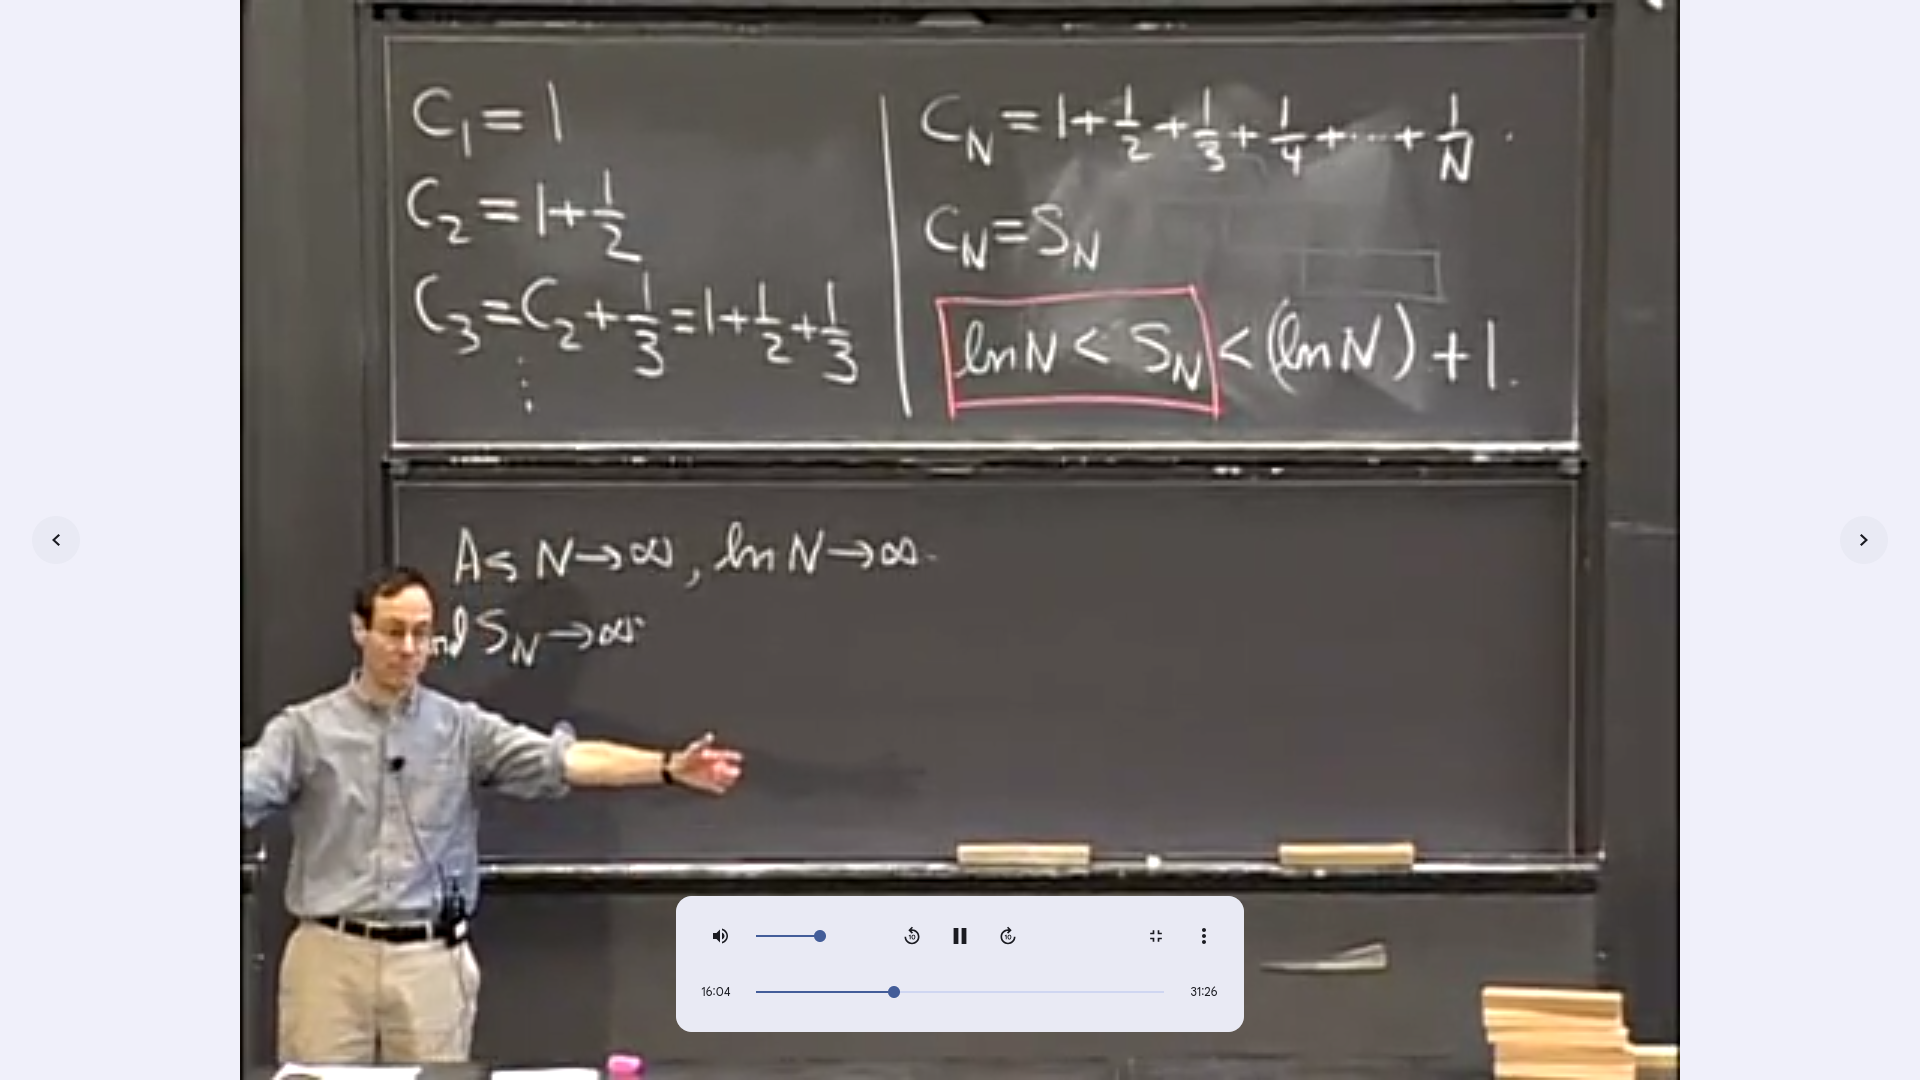 C₁ = 1
C₂ = 1 + 1/2
C₃ = C₂ + 1/3 = 1 + 1/2 + 1/3
⋮
C_N = 1 + 1/2 + 1/3 + 1/4 + ··· + 1/N .
C_N = S_N
ln N < S_N < (ln N) + 1.
As N → ∞, ln N → ∞.
nd S_N → ∞.
10
10
16:04
31:26